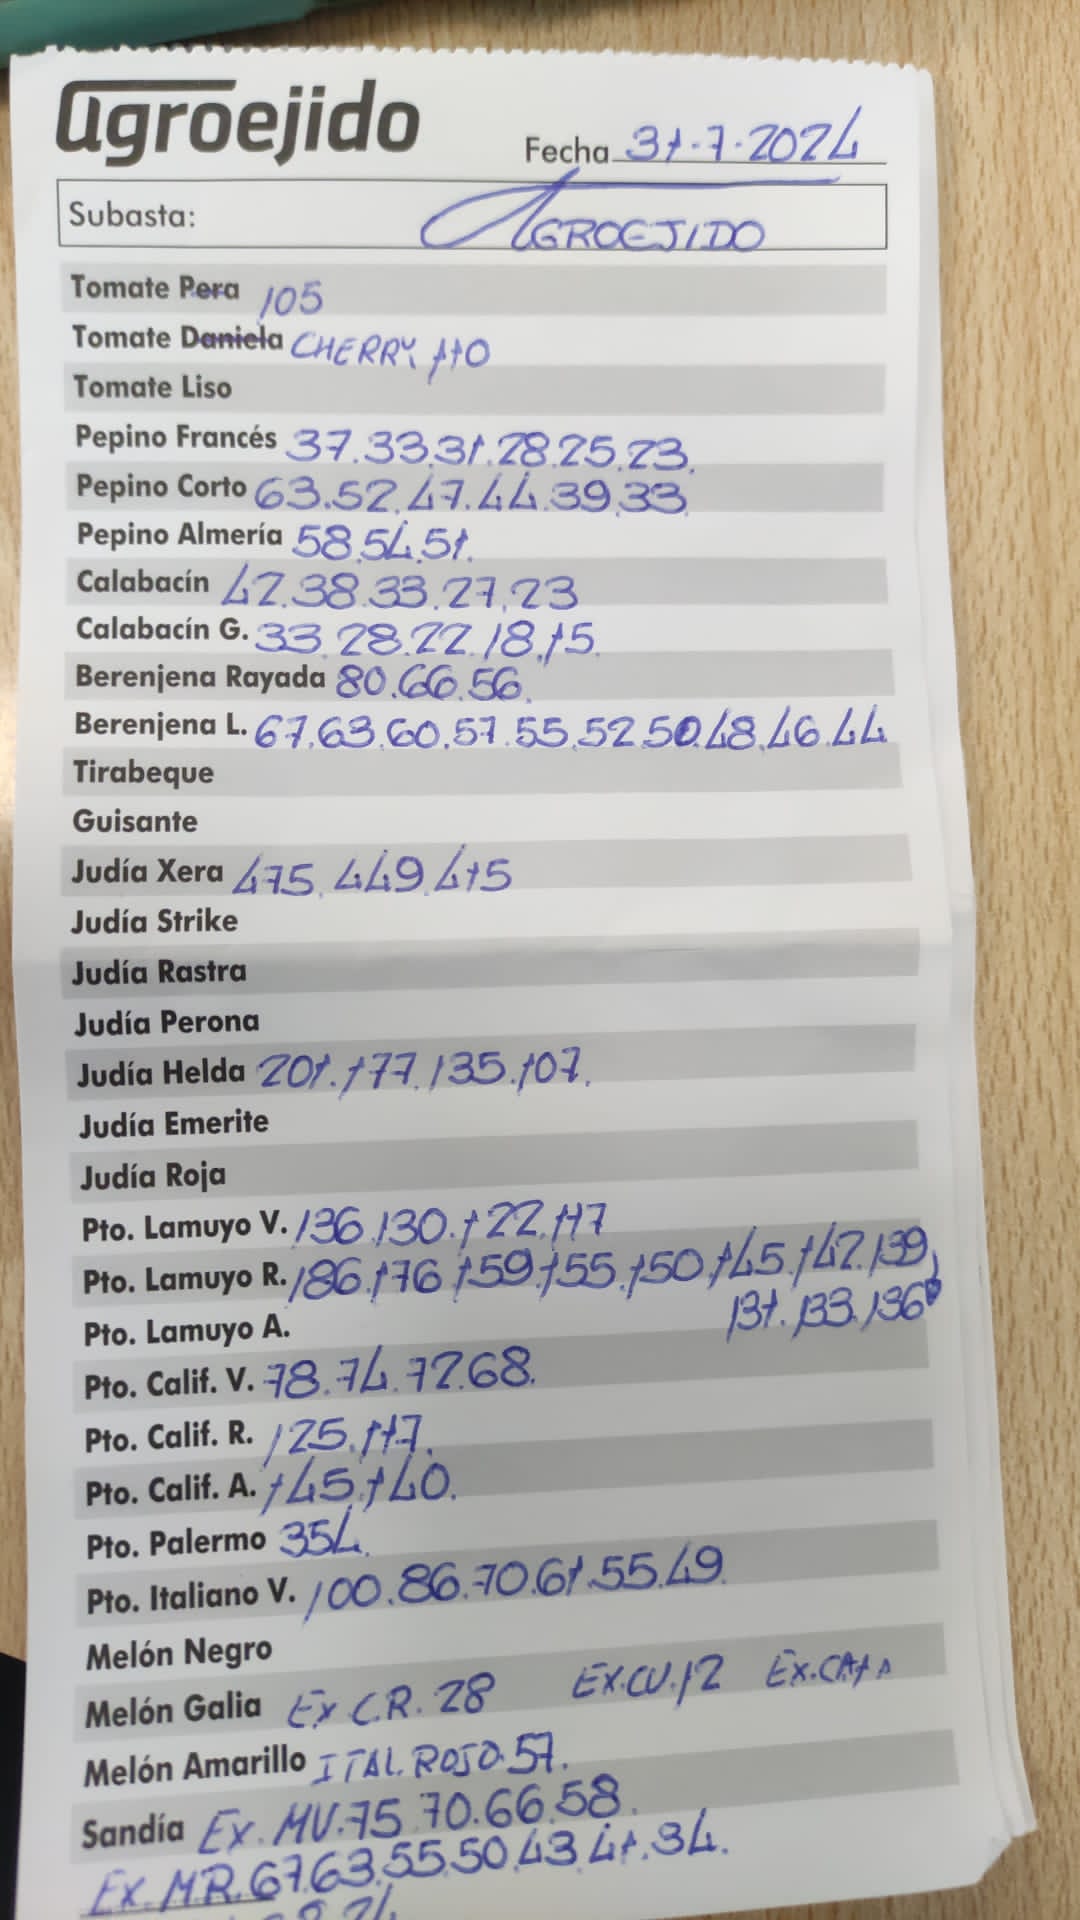 agroejido
Fecha 31.7.2024
Subasta: AGROEJIDO
Tomate Pera 105
Tomate Daniela CHERRY. 110
Tomate Liso
Pepino Francés 37.33.31.28.25.23.
Pepino Corto 63.52.47.44.39.33.
Pepino Almería 58.54.51.
Calabacín 42.38.33.27.23
Calabacín G. 33.28.22.18.15.
Berenjena Rayada 80.66.56.
Berenjena L. 67.63.60.57.55.52.50.48.46.44
Tirabeque
Guisante
Judía Xera 475.449.415
Judía Strike
Judía Rastra
Judía Perona
Judía Helda 201.177.135.107.
Judía Emerite
Judía Roja
Pto. Lamuyo V. 136.130.122.117
Pto. Lamuyo R. 186.176.159.155.150.145.142.139,
131.133.136
Pto. Lamuyo A.
Pto. Calif. V. 78.74.72.68.
Pto. Calif. R. 125.117.
Pto. Calif. A. 145.140.
Pto. Palermo 354.
Pto. Italiano V. 100.86.70.61.55.49.
Melón Negro
Melón Galia Ex C.R. 28 EX.CU.12
Melón Amarillo ITAL. ROJO.57.
Sandía Ex. MU.75.70.66.58.
EX. M.R. 67.63.55.50.43.41.34.